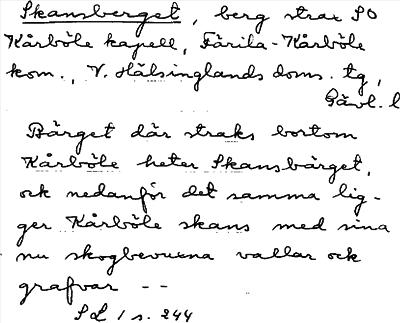 Skansberget, berg strax SO
Kårböle kapell, Färila-Kårböle
kom., V. Hälsinglands doms. tg,
Gävl. l
Bärget där straks bortom
Kårböle heter Skansbärget,
ock nedanför det samma lig-
ger Kårböle skans med sina
nu skogbevuxna vallar ock
grafvar --
SL 1 s. 244